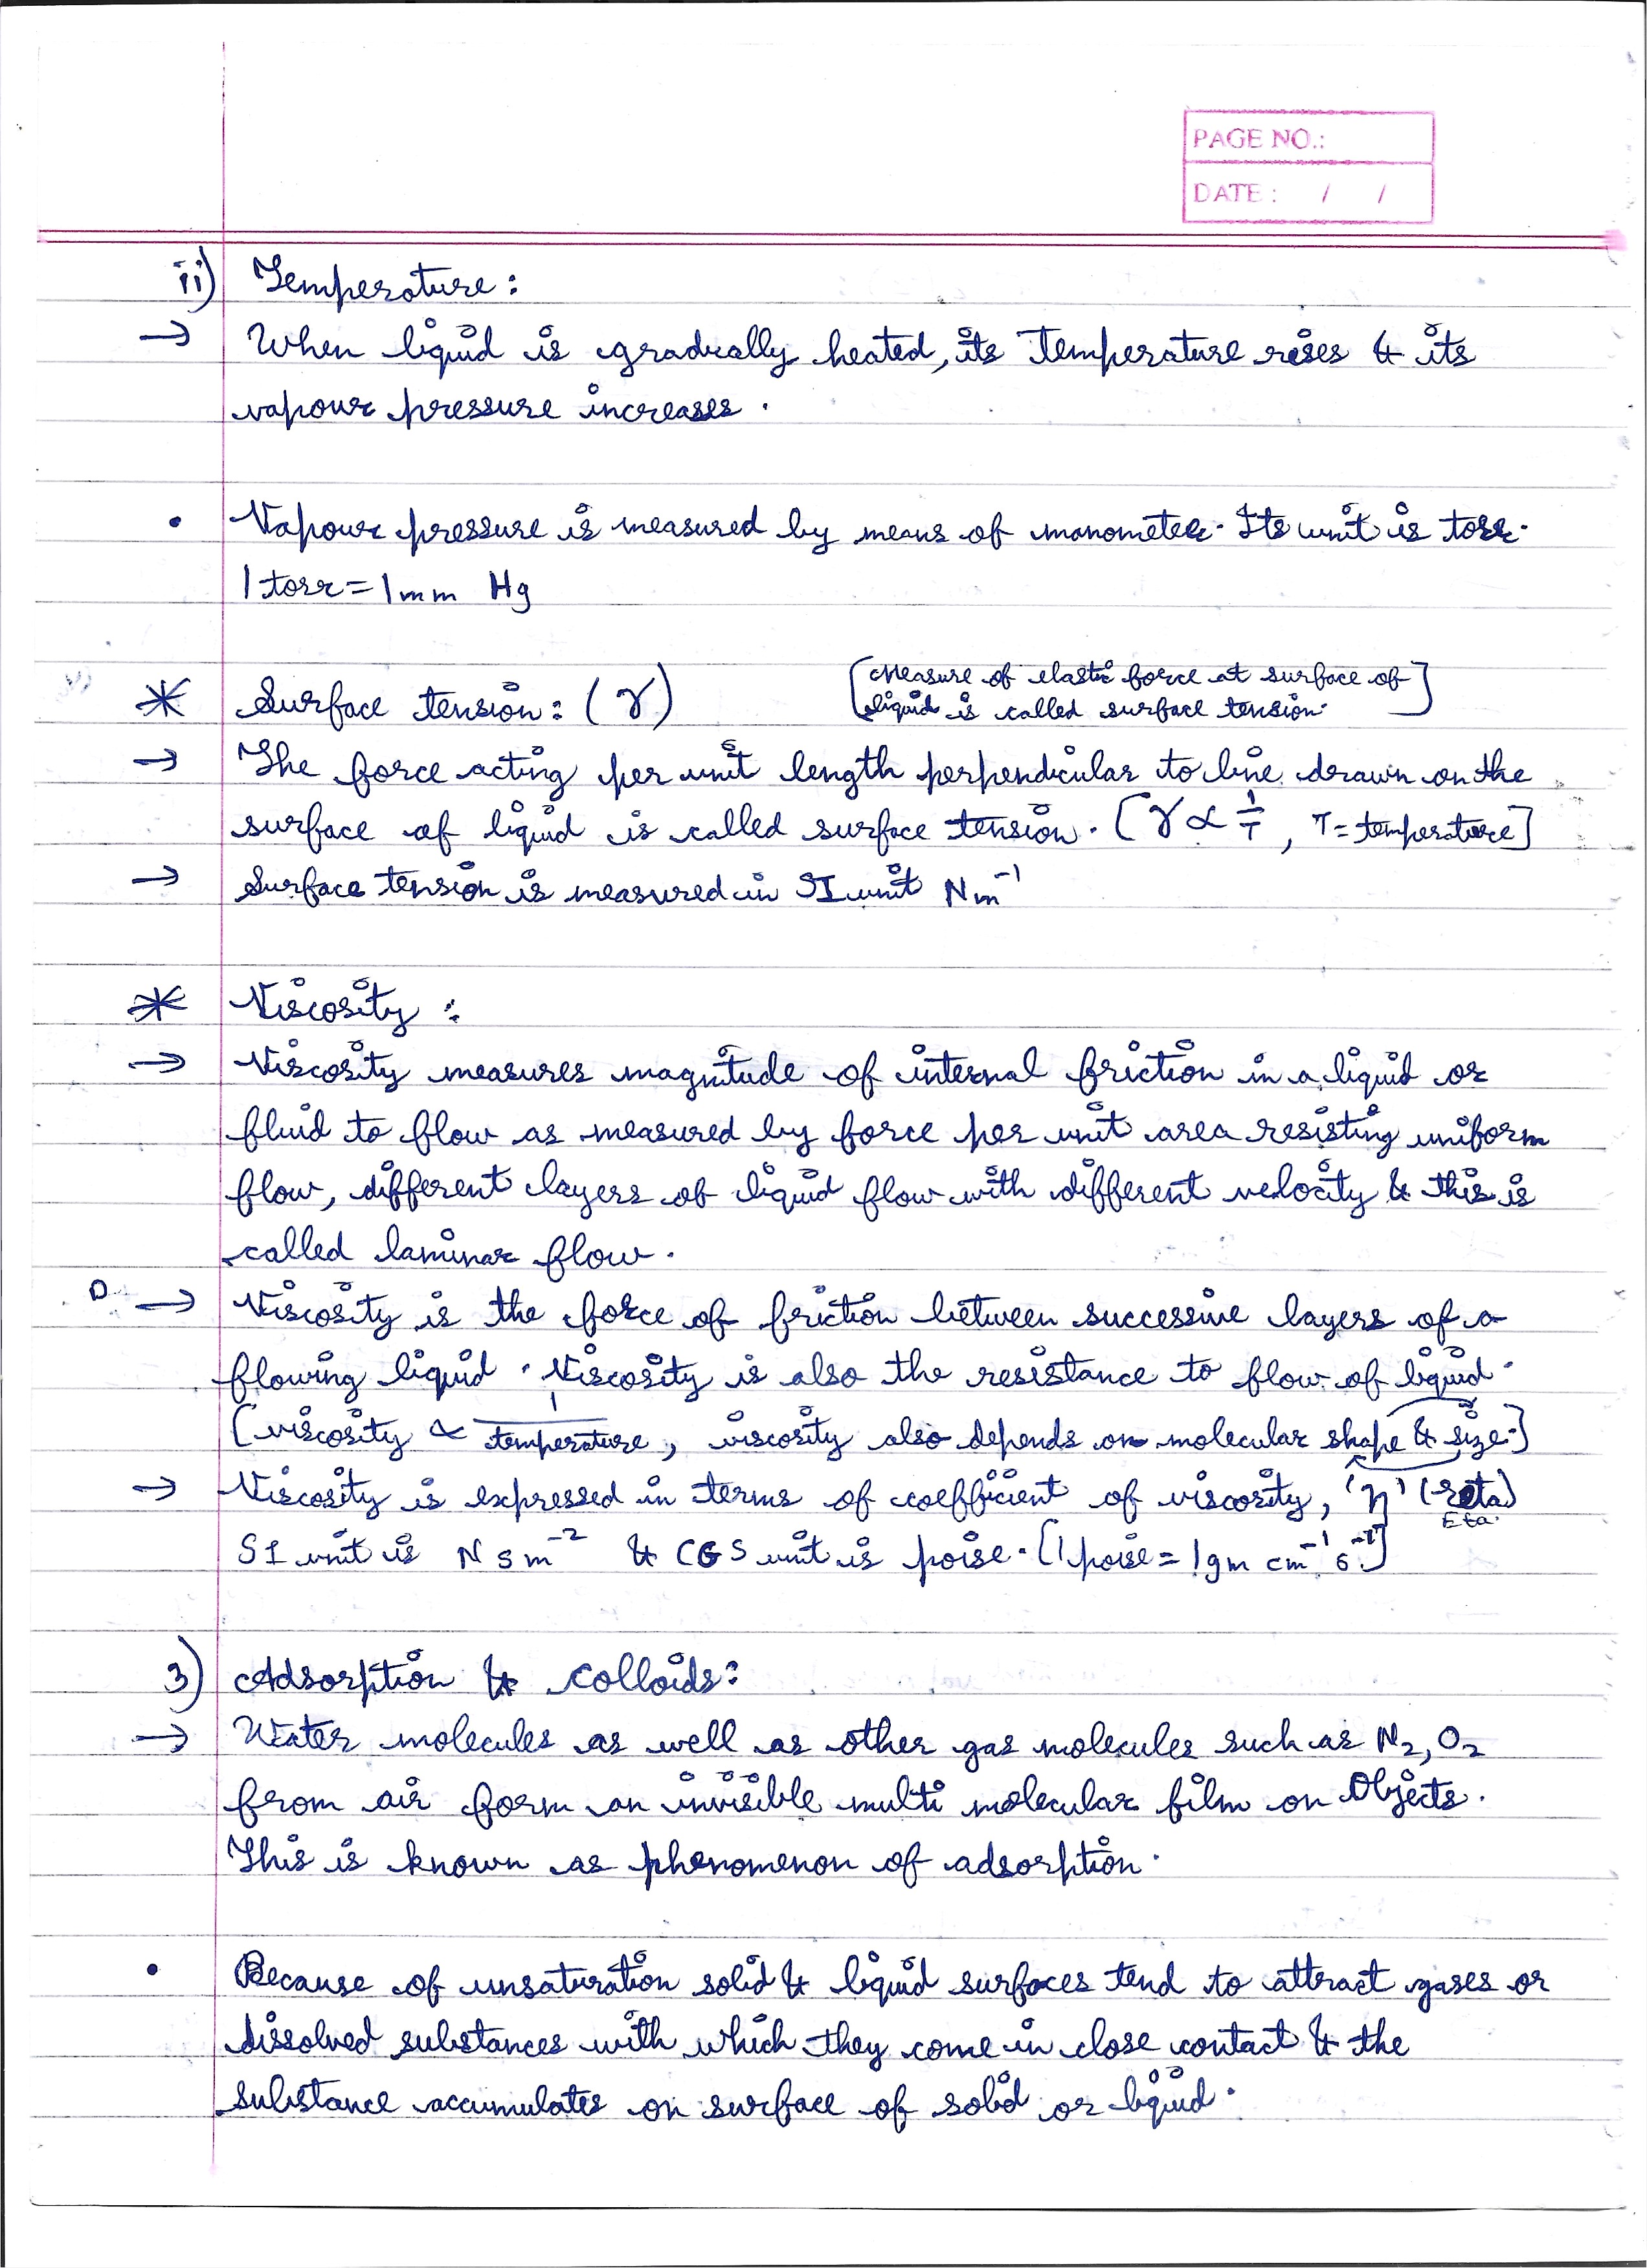 PAGE NO.:
DATE : / /
ii) Temperature:
→ When liquid is gradually heated, its Temperature rises & its
vapour pressure increases.
• Vapour pressure is measured by means of manometer. Its unit is torr.
1 torr = 1 mm Hg
* Surface tension: (γ) [Measure of elastic force at surface of
liquid is called surface tension.]
→ The force acting per unit length perpendicular to line drawn on the
surface of liquid is called surface tension. [γ ∝ 1/T, T = temperature]
→ Surface tension is measured in SI unit Nm⁻¹
* Viscosity :
→ Viscosity measures magnitude of internal friction in a liquid or
fluid to flow as measured by force per unit area resisting uniform
flow, different layers of liquid flow with different velocity & this is
called laminar flow.
→ Viscosity is the force of friction between successive layers of a
flowing liquid. Viscosity is also the resistance to flow of liquid.
[viscosity ∝ 1/temperature, viscosity also depends on molecular shape & size.]
→ Viscosity is expressed in terms of coefficient of viscosity, 'η' (
Eta.
SI unit is N s m⁻² & CGS unit is poise. [1 poise = 1 gm cm⁻¹ s⁻¹]
3) Adsorption & colloids:
→ Water molecules as well as other gas molecules such as N₂, O₂
from air form an invisible multi molecular film on Objects.
This is known as phenomenon of adsorption.
• Because of unsaturation solid & liquid surfaces tend to attract gases or
dissolved substances with which they come in close contact & the
substance accumulates on surface of solid or liquid.